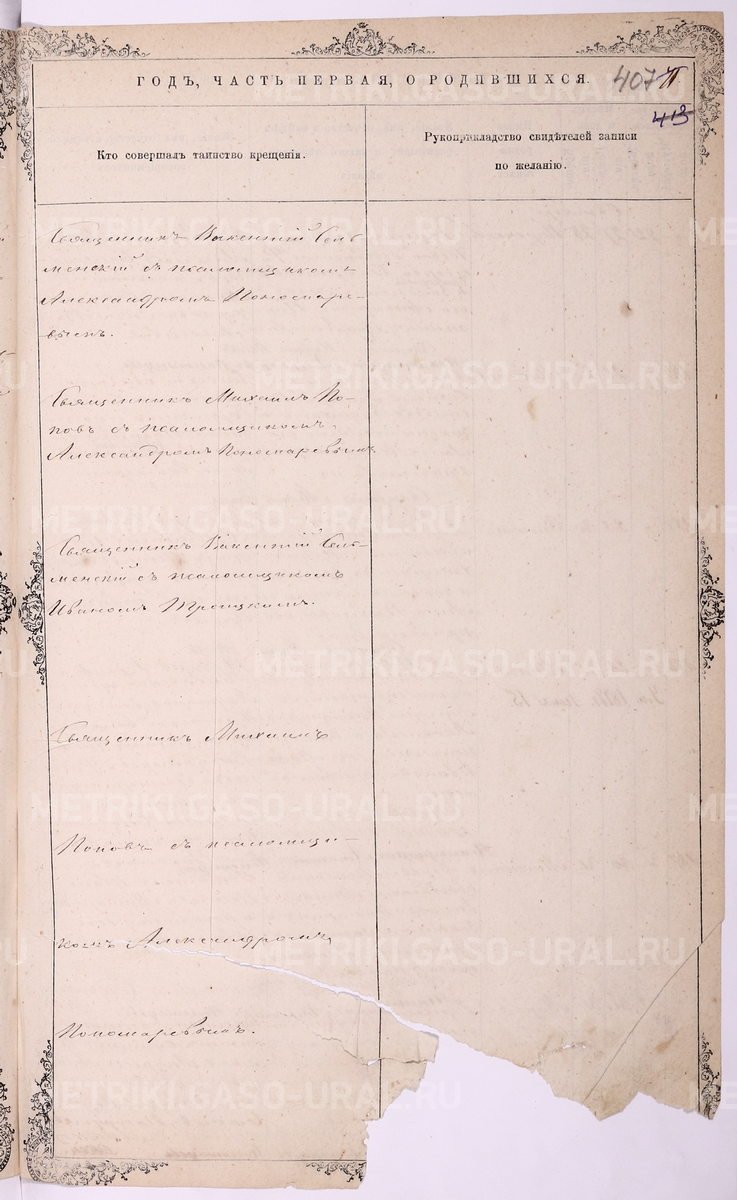 ГОДЪ, ЧАСТЬ ПЕРВАЯ, О РОДИВШИХСЯ.
407
413
Кто совершалъ таинство крещенія.
Рукоприкладство свидѣтелей записи
по желанію.
Священникъ Викентій Селе
менскій съ псаломщикомъ
Александромъ Пономаре-
вымъ.
Священникъ Михаилъ По-
повъ съ псаломщикомъ
Александромъ Пономаревымъ
Священникъ Викентій Селе-
менскій съ псаломщикомъ
Иваномъ Троицкимъ.
Священникъ Михаилъ
Поповъ съ псаломщи-
комъ Александромъ
Пономаревымъ.
METRIKI.GASO-URAL.RU